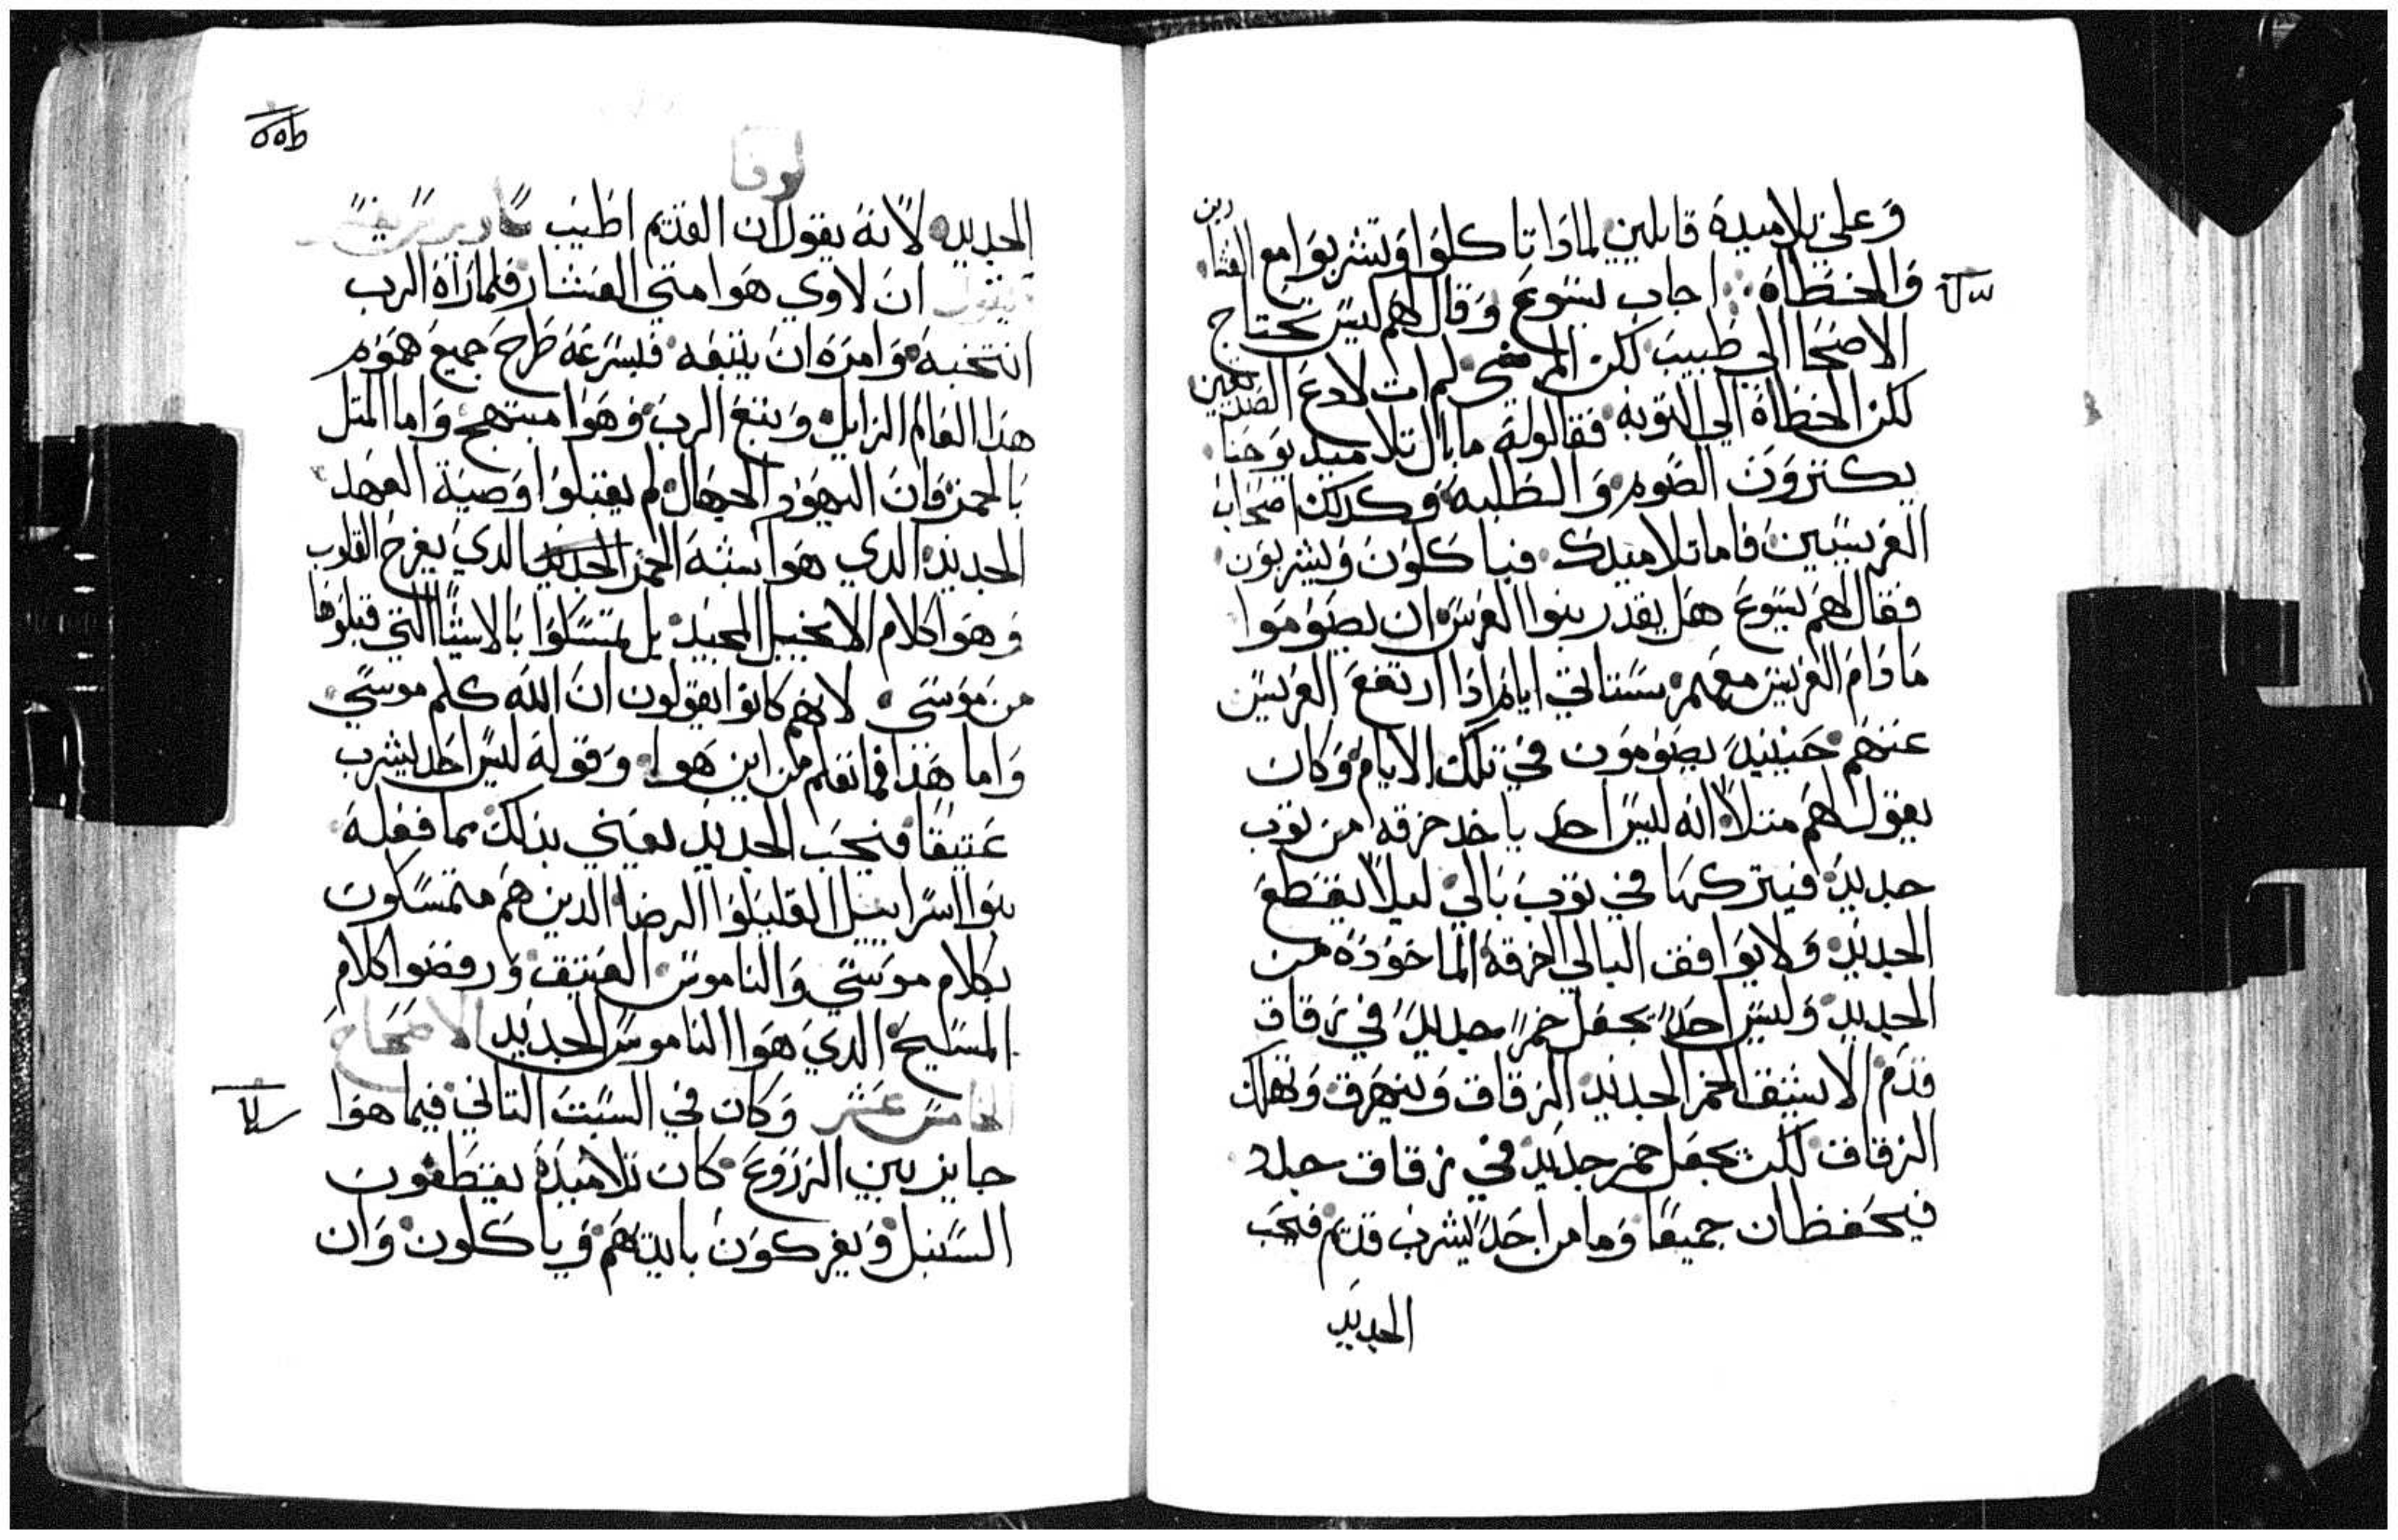 وعلي تلاميده قايلين لمادا تاكلوا وتشربوا مع العشارين
والخطاه اجاب يسوع وقال لهم ليس تحتاج
الاصحا الي طبيب لكن المرضي لم ات لادع الصديقين
لكن الخطاة الي التوبه فقالوا له ما بال تلاميد يوحنا
يكتروون الصوم والطلبه وكدلك اصحاب
الفريسيين فاما تلاميدك فياكلون ويشربون
فقال لهم يسوع هل يقدر بنوا العرس ان يصوموا
ما دام العريس معهم ستاتي ايام ادا ارتفع العريس
عنهم حينيد يصومون في تلك الايام وكان
يقول لهم متلا انه ليس احد ياخد خرقه من توب
جديد فيتركها في توب بالي ليلا يقطع
الجديد ولا يوافق البالي الخرقه الماخوده من
الجديد وليس احد يجعل خمر جديد في زقاق
قدم الا يشق الخمر الجديد الزقاق وينهرق وتهلك
الزقاق لكن تجعل خمر جديد في زقاق جدد
فيحفظان جميعا وما من احد يشرب قديم فيحب
الجديد
لوقا
الجديد لانه يقول ان القديم اطيب
يقول ان لاوي هوا متي العشار فلما راه الرب
انتخبه وامره ان يتبعه فبسرعه طرح جميع هموم
هدا العالم الزايل وتبع الرب وهوا مبتهج واما المتل
بالخمر فان اليهود الجهال لم يقبلوا وصية العهد
الجديد الدي هوا يشبه الخمر الجديد الدي يفرح القلوب
وهوا كلام الانجيل المجيد بل تمسكوا بالاشيا التي قبلوها
من موسي لانهم كانوا يقولون ان الله كلم موسي
واما هدا فما نعلم من اين هوا وقوله ليس احد يشرب
عتيقا فيحب الجديد يعني بدلك مما فعله
بنوا اسراييل القليلوا الرضا الدين هم متمسكون
بكلام موسي والناموس العتيق ورفضوا كلام
المسيح الدي هوا الناموس الجديد الاصحاح
الخامس عشر وكان في السبت التاني فيما هوا
جايز بين الزروع كان تلاميده يقطفون
السنبل ويفركون بايديهم وياكلون وان